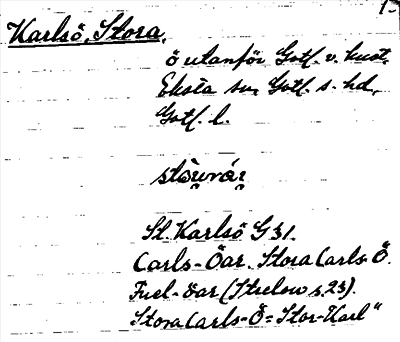 Karlsö, Stora.
ö utanför Gotl. v. kust.
Eksta sn, Gotl. s. hd,
Gotl. l.
St. Karlsö G 31.
Carls-Öar. Stora Carls-Ö.
Fuel-öar (Strelow s. 23).
Stora Carls-Ö = Stor-Karl"